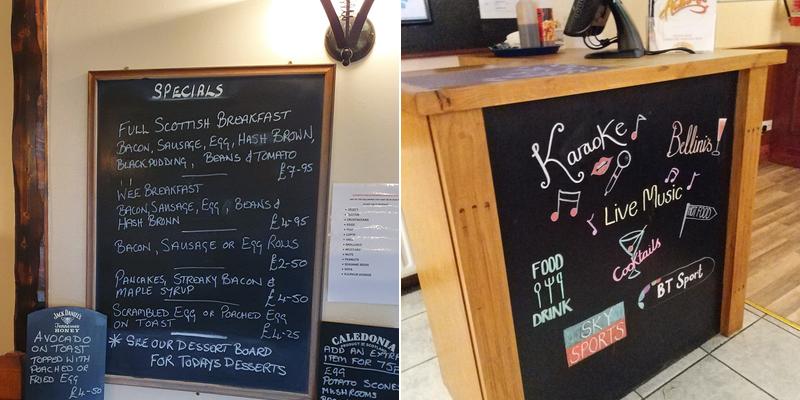 SPECIALS
FULL SCOTTISH BREAKFAST
BACON, SAUSAGE, EGG, HASH BROWN,
BLACKPUDDING, BEANS & TOMATO
£7-95
WEE BREAKFAST
BACON, SAUSAGE, EGG, BEANS &
HASH BROWN
£4-95
BACON, SAUSAGE OR EGG ROLLS
£2-50
PANCAKES, STREAKY BACON &
MAPLE SYRUP
£4-50
SCRAMBLED EGG OR POACHED EGG
ON TOAST
£4-25
* SEE OUR DESSERT BOARD
FOR TODAYS DESSERTS
JACK DANIEL'S
Tennessee
HONEY
AVOCADO
ON TOAST
TOPPED WITH
POACHED OR
FRIED EGG
£4-50
CALEDONIA
PRODUCT OF SCOTLAND
ADD AN EXTRA
ITEM FOR 75P
EGG
POTATO SCONES
MUSHROOMS
Karaoke
Bellini's
Live Music
HOT FOOD
Cocktails
FOOD
DRINK
BT Sport
SKY
SPORTS